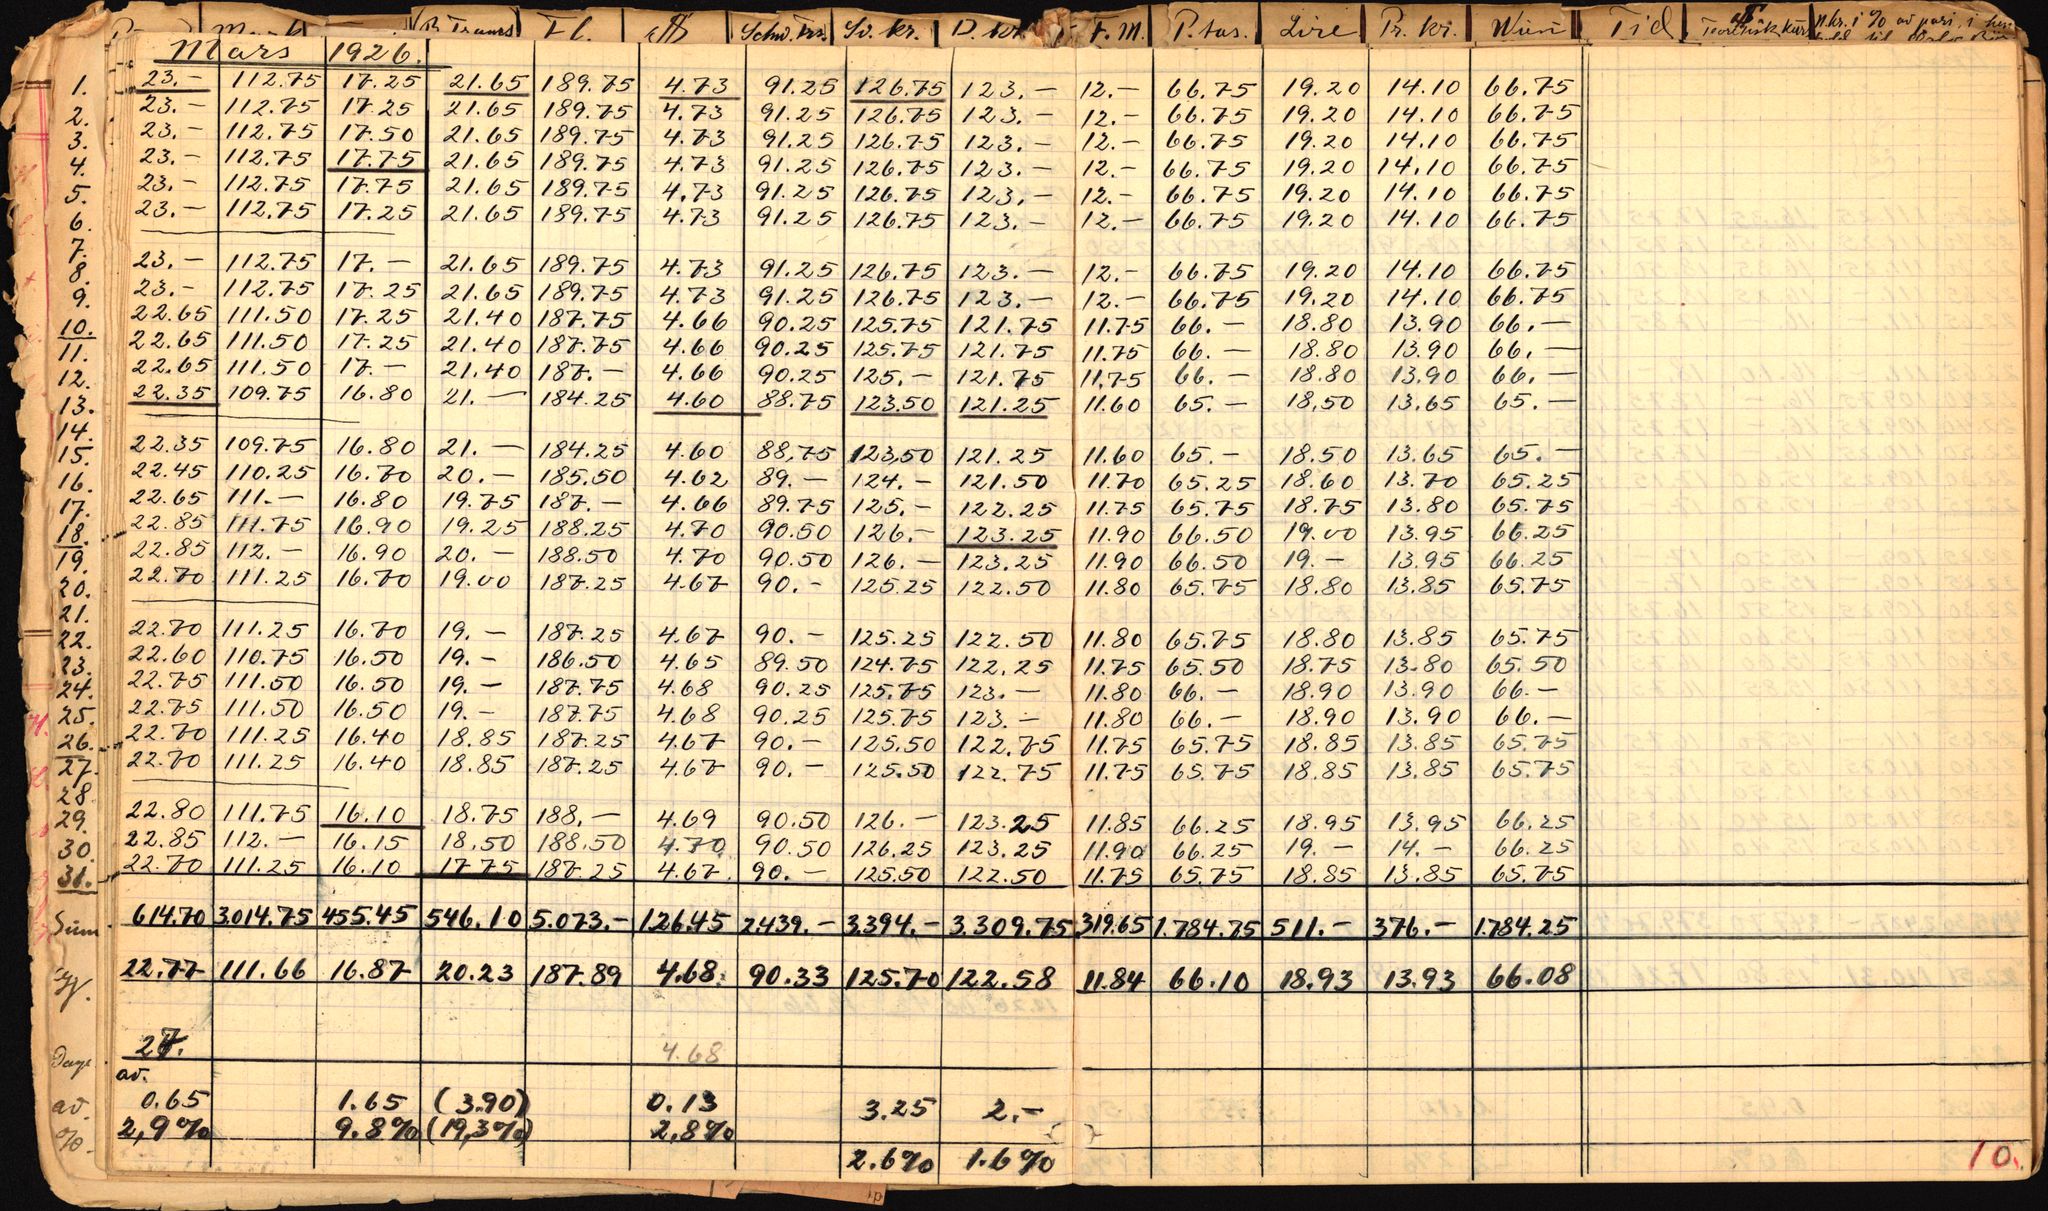 Mark B. Francs Fl. Schw. Frs. Sv. kr. D. kr. F. M. P.tas. Lire Pr. kr. Wien Tid Teoretisk kurs N.kr. i % av pari i
Mars 1926.
1. 23.- 112.75 17.25 21.65 189.75 4.73 91.25 126.75 123.- 12.- 66.75 19.20 14.10 66.75
2. 23.- 112.75 17.25 21.65 189.75 4.73 91.25 126.75 123.- 12.- 66.75 19.20 14.10 66.75
3. 23.- 112.75 17.50 21.65 189.75 4.73 91.25 126.75 123.- 12.- 66.75 19.20 14.10 66.75
4. 23.- 112.75 17.75 21.65 189.75 4.73 91.25 126.75 123.- 12.- 66.75 19.20 14.10 66.75
5. 23.- 112.75 17.75 21.65 189.75 4.73 91.25 126.75 123.- 12.- 66.75 19.20 14.10 66.75
6. 23.- 112.75 17.25 21.65 189.75 4.73 91.25 126.75 123.- 12.- 66.75 19.20 14.10 66.75
7.
8. 23.- 112.75 17.- 21.65 189.75 4.73 91.25 126.75 123.- 12.- 66.75 19.20 14.10 66.75
9. 23.- 112.75 17.25 21.65 189.75 4.73 91.25 126.75 123.- 12.- 66.75 19.20 14.10 66.75
10. 22.65 111.50 17.25 21.40 187.75 4.66 90.25 125.75 121.75 11.75 66.- 18.80 13.90 66.-
11. 22.65 111.50 17.25 21.40 187.75 4.66 90.25 125.75 121.75 11.75 66.- 18.80 13.90 66.-
12. 22.65 111.50 17.- 21.40 187.- 4.66 90.25 125.- 121.75 11.75 66.- 18.80 13.90 66.-
13. 22.35 109.75 16.80 21.- 184.25 4.60 88.75 123.50 121.25 11.60 65.- 18.50 13.65 65.-
14.
15. 22.35 109.75 16.80 21.- 184.25 4.60 88.75 123.50 121.25 11.60 65.- 18.50 13.65 65.-
16. 22.45 110.25 16.70 20.- 185.50 4.62 89.- 124.- 121.50 11.70 65.25 18.60 13.70 65.25
17. 22.65 111.- 16.80 19.75 187.- 4.66 89.75 125.- 122.25 11.75 65.75 18.75 13.80 65.75
18. 22.85 111.75 16.90 19.25 188.25 4.70 90.50 126.- 123.25 11.90 66.50 19.00 13.95 66.25
19. 22.85 112.- 16.90 20.- 188.50 4.70 90.50 126.- 123.25 11.90 66.50 19.- 13.95 66.25
20. 22.70 111.25 16.70 19.00 187.25 4.67 90.- 125.25 122.50 11.80 65.75 18.80 13.85 65.75
21.
22. 22.70 111.25 16.70 19.- 187.25 4.67 90.- 125.25 122.50 11.80 65.75 18.80 13.85 65.75
23. 22.60 110.75 16.50 19.- 186.50 4.65 89.50 124.75 122.25 11.75 65.50 18.75 13.80 65.50
24. 22.75 111.50 16.50 19.- 187.75 4.68 90.25 125.75 123.- 11.80 66.- 18.90 13.90 66.-
25. 22.75 111.50 16.50 19.- 187.75 4.68 90.25 125.75 123.- 11.80 66.- 18.90 13.90 66.-
26. 22.70 111.25 16.40 18.85 187.25 4.67 90.- 125.50 122.75 11.75 65.75 18.85 13.85 65.75
27. 22.70 111.25 16.40 18.85 187.25 4.67 90.- 125.50 122.75 11.75 65.75 18.85 13.85 65.75
28.
29. 22.80 111.75 16.10 18.75 188.- 4.69 90.50 126.- 123.25 11.85 66.25 18.95 13.95 66.25
30. 22.85 112.- 16.15 18.50 188.50 4.70 90.50 126.25 123.25 11.90 66.25 19.- 14.- 66.25
31. 22.70 111.25 16.10 17.75 187.25 4.67 90.- 125.50 122.50 11.75 65.75 18.85 13.85 65.75
Sum 614.70 3.014.75 455.45 546.10 5.073.- 126.45 2.439.- 3.394.- 3.309.75 319.65 1.784.75 511.- 376.- 1.784.25
22.77 111.66 16.87 20.23 187.89 4.68 90.33 125.70 122.58 11.84 66.10 18.93 13.93 66.08
Dage 27. 4.68
av.
av. 0.65 1.65 (3.90) 0.13 3.25 2.-
%. 2,9% 9.8% (19,3%) 2,8%
2.6% 1.6%
10.